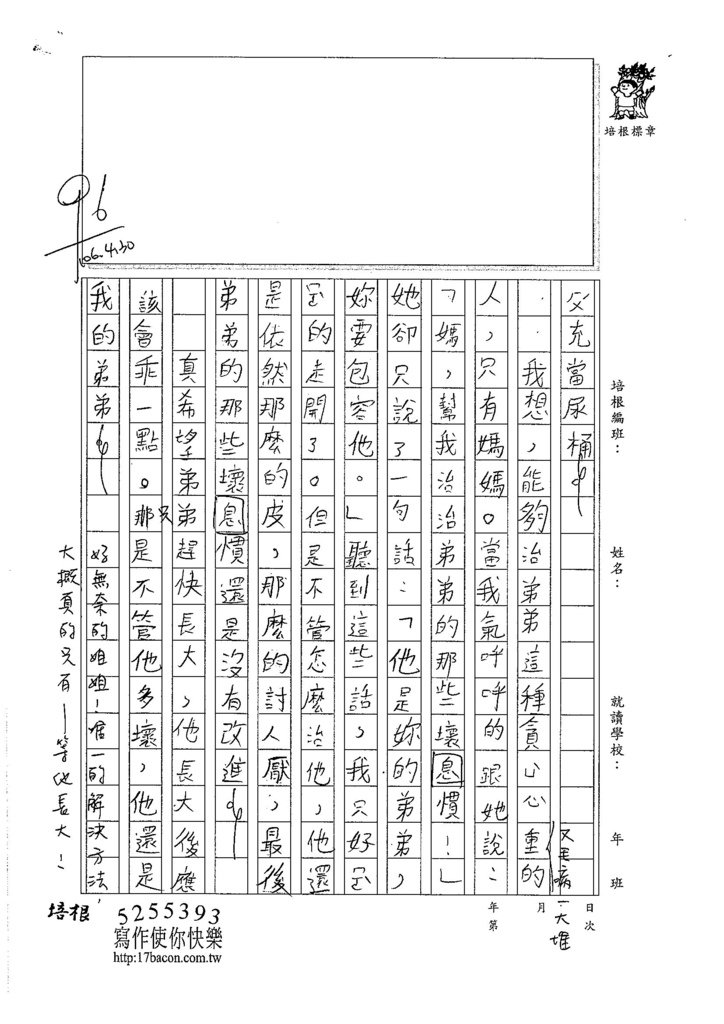 培根標章
培根編班：
姓名：
就讀學校：
年
班
日次
月
年第
96
106.4.30
父充當尿桶
．．我想，能夠治弟弟這種貪心心重的
又毛病一大堆
人，只有媽媽。當我氣呼呼的跟她說：
「媽，幫我治治弟弟的那些壞息慣！」
她卻只說了一句話：「他是妳的弟弟，
妳要包容他。」聽到這些話，我只好
的走開了。但是不管怎麼治他，他還
是依然那麼的皮，那麼的討人厭，最後
弟弟的那些壞息慣還是沒有改進
真希望弟弟趕快長大，他長大後應
該會乖一點。那只是不管他多壞，他還是
我的弟弟
好無奈的姐姐！唯一的解決方法，
大概真的只有—等他長大！
培根
5255393
寫作使你快樂
http:17bacon.com.tw